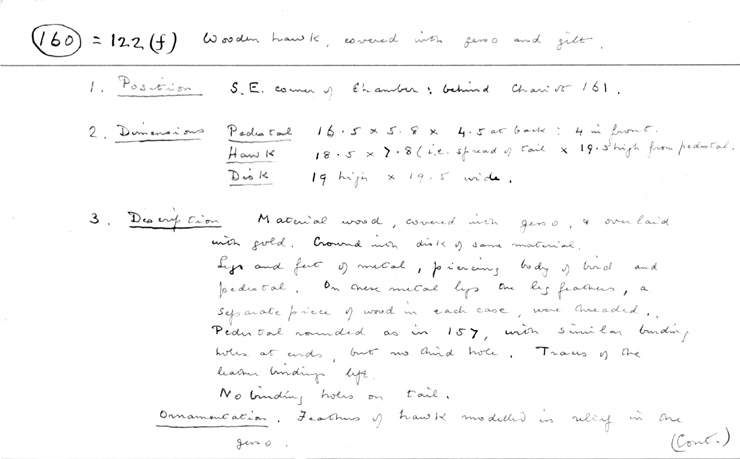 160 = 122 (f) Wooden hawk, covered with gesso and gilt.
1. Position S.E. corner of Chamber: behind Chariot 161.
2. Dimensions Pedestal 16.5 x 5.8 x 4.5 at back: 4 in front.
Hawk 18.5 x 7.8 (i.e. spread of tail x 19.5 high from pedestal.
Disk 19 high x 19.5 wide.
3. Description Material wood, covered with gesso, & overlaid
with gold. Crowned with disk of same material.
Legs and feet of metal, piercing body of bird and
pedestal. On these metal legs the leg feathers, a
separate piece of wood in each case, were threaded.
Pedestal rounded as in 157, with similar binding
holes at ends, but no third hole. Traces of the
leather bindings left.
No binding holes on tail.
Ornamentation. Feathers of hawk modelled in relief in the
gesso.
(Cont.)